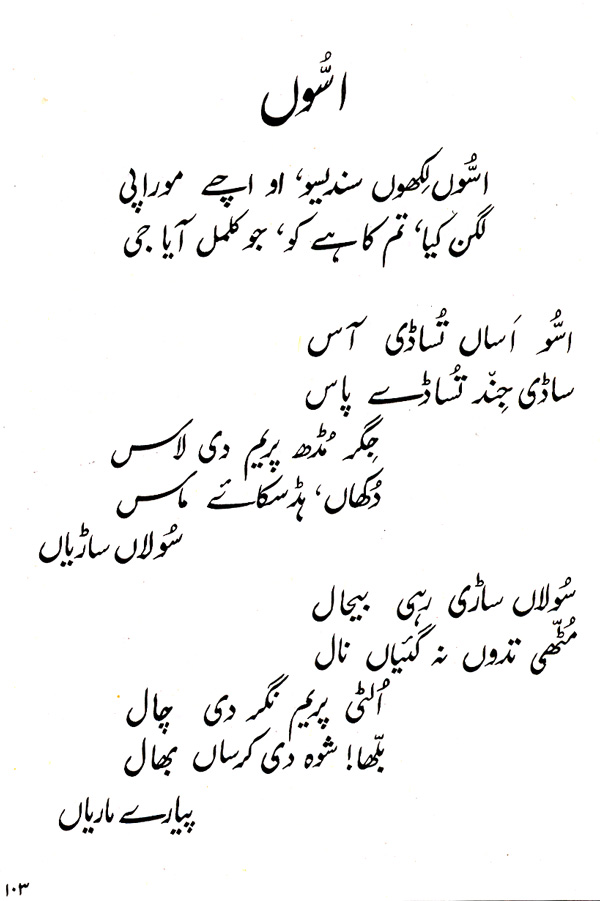 اسُّوں
اسُّوں لِکھوں سندیسو، او اچے مورا پی
لگن کیا، تم کاہے کو، جو کلمل آیا جی
اسُّو اَساں تُساڈی آس
ساڈی جِنّد تُساڈے پاس
جِگر مُڈھ پریم دی لاس
دُکھاں، ہڈ سکائے ماس
سُولاں ساڑیاں
سُولاں ساڑی رہی بیحال
مُٹّھی تدوں نہ گئیاں نال
اُلٹی پریم نگر دی چال
بلّھا! شوہ دی کرساں بھال
پیارے ماریاں
۱۰۳